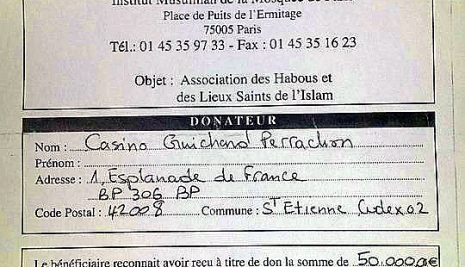 Institut Musulman de la Mosquée de
Place de Puits de l'Ermitage
75005 Paris
Tél.: 01 45 35 97 33 - Fax : 01 45 35 16 23
Objet : Association des Habous et
des Lieux Saints de l'Islam
DONATEUR
Nom : Casino Guichard Perrachon
Prénom :
Adresse : 1, Esplanade de France
BP 306 BP
Code Postal : 42008 Commune : St Etienne Cedex 02
Le bénéficiaire reconnait avoir reçu à titre de don la somme de 50.000,00€